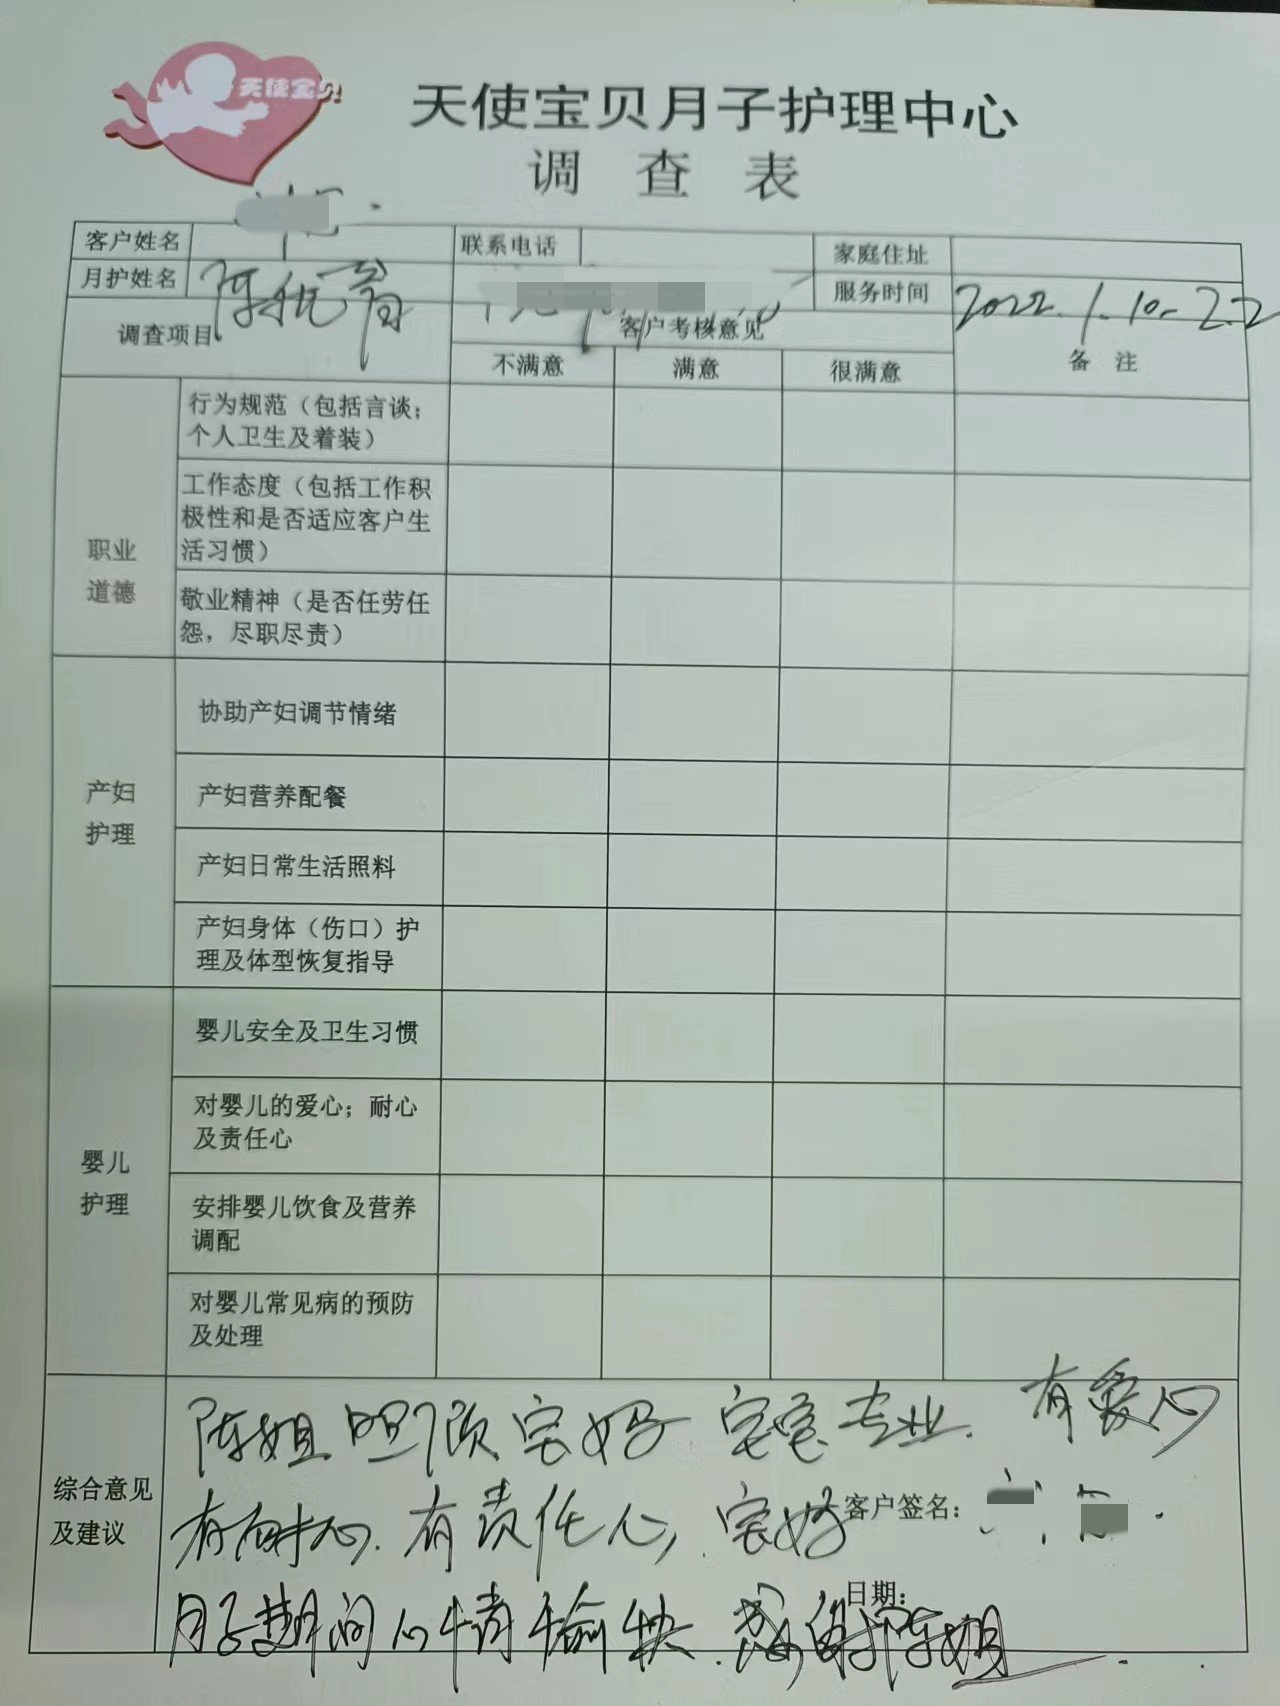 天使宝贝
天使宝贝月子护理中心
调 查 表
客户姓名
联系电话
家庭住址
月护姓名
陈
服务时间
2022.1.10-2.2
调查项目
客户考核意见
备 注
不满意
满意
很满意
职业
道德
行为规范（包括言谈；
个人卫生及着装）
工作态度（包括工作积
极性和是否适应客户生
活习惯）
敬业精神（是否任劳任
怨，尽职尽责）
产妇
护理
协助产妇调节情绪
产妇营养配餐
产妇日常生活照料
产妇身体（伤口）护
理及体型恢复指导
婴儿
护理
婴儿安全及卫生习惯
对婴儿的爱心；耐心
及责任心
安排婴儿饮食及营养
调配
对婴儿常见病的预防
及处理
综合意见
及建议
陈姐照顾宝妈 宝宝专业. 有爱心
有耐心. 有责任心, 宝妈
月子期间心情愉快. 感谢陈姐
客户签名：
日期：